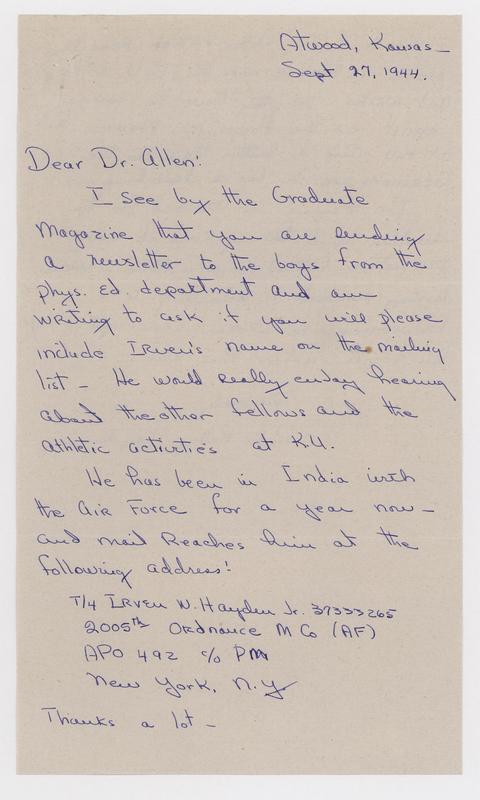 Atwood, Kansas -
Sept 27, 1944.
Dear Dr. Allen:
I see by the Graduate
Magazine that you are sending
a newsletter to the boys from the
phys. Ed. department and am
writing to ask if you will please
include Irven's name on the mailing
list - He would really enjoy hearing
about the other fellows and the
athletic activities at K.U.
He has been in India with
the Air Force for a year now -
and mail Reaches him at the
following address:
T/4 Irven W. Hayden Jr. 37333265
2005th Ordnance M Co (AF)
APO 492 c/o PM
New York, N.Y.
Thanks a lot -